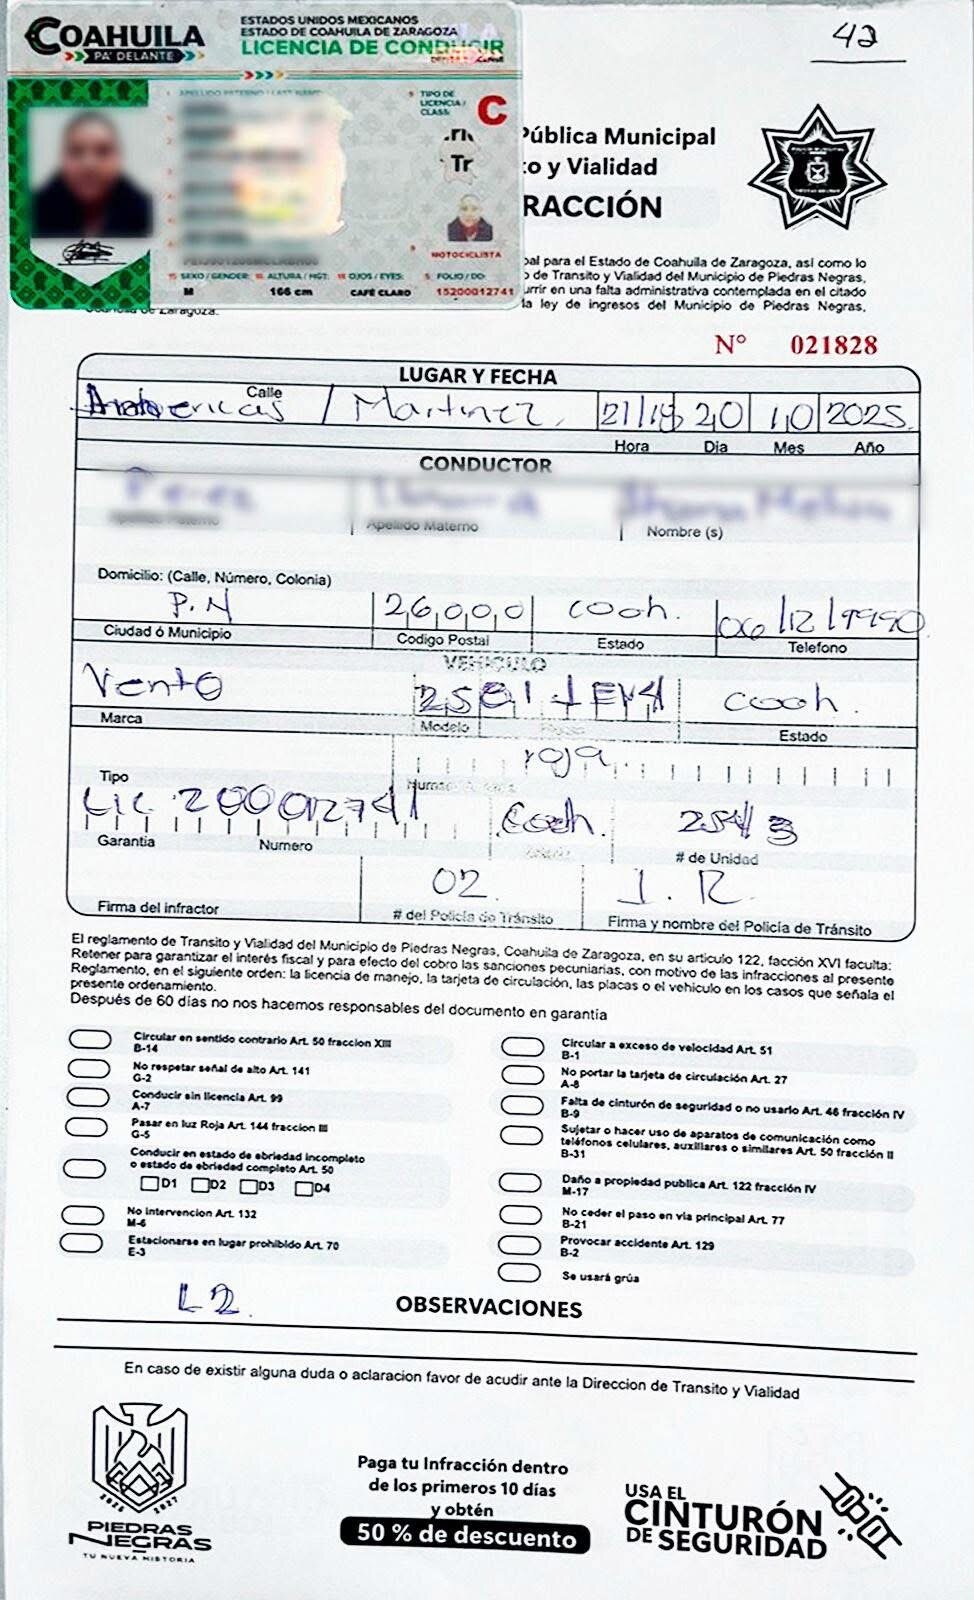 42
COAHUILA
PA' DELANTE
ESTADOS UNIDOS MEXICANOS
ESTADO DE COAHUILA DE ZARAGOZA
LICENCIA DE CONDUCIR
TIPO DE
LICENCIA /
CLASS:
C
Tr
MOTOCICLISTA
SEXO / GENDER: ALTURA / HGT: OJOS / EYES: FOLIO / DD:
M 166 cm CAFÉ CLARO 15200012741
Pública Municipal
o y Vialidad
RACCIÓN
al para el Estado de Coahuila de Zaragoza, así como lo
de Transito y Vialidad del Municipio de Piedras Negras,
urrir en una falta administrativa contemplada en el citado
la ley de ingresos del Municipio de Piedras Negras,
de Zaragoza.
N° 021828
LUGAR Y FECHA
Calle
/ Martinez. 21/18 20 10 2025
Hora Dia Mes Año
CONDUCTOR
Apellido Materno Nombre (s)
Domicilio: (Calle, Número, Colonia)
P.N 26,0,0,0 coah. 06/12/1990
Ciudad ó Municipio Codigo Postal Estado Telefono
VEHICULO
Vento coah.
Marca Modelo Estado
roja.
Tipo
Lic. 200012741 Coah.
Garantia Numero # de Unidad
02 I. R.
Firma del infractor # del Policía de Tránsito Firma y nombre del Policía de Tránsito
El reglamento de Transito y Vialidad del Municipio de Piedras Negras, Coahuila de Zaragoza, en su articulo 122, facción XVI faculta:
Retener para garantizar el interés fiscal y para efecto del cobro las sanciones pecuniarias, con motivo de las infracciones al presente
Reglamento, en el siguiente orden: la licencia de manejo, la tarjeta de circulación, las placas o el vehiculo en los casos que señala el
presente ordenamiento.
Después de 60 días no nos hacemos responsables del documento en garantía
Circular en sentido contrario Art. 50 fraccion XIII
B-14
No respetar señal de alto Art. 141
G-2
Conducir sin licencia Art. 99
A-7
Pasar en luz Roja Art. 144 fraccion III
G-5
Conducir en estado de ebriedad incompleto
o estado de ebriedad completo Art. 50
D1 D2 D3 D4
No intervencion Art. 132
M-6
Estacionarse en lugar prohibido Art. 70
E-3
Circular a exceso de velocidad Art. 51
B-1
No portar la tarjeta de circulación Art. 27
A-8
Falta de cinturón de seguridad o no usarlo Art. 46 fracción IV
B-9
Sujetar o hacer uso de aparatos de comunicación como
teléfonos celulares, auxiliares o similares Art. 50 fracción II
B-31
Daño a propiedad publica Art. 122 fracción IV
M-17
No ceder el paso en via principal Art. 77
B-21
Provocar accidente Art. 129
B-2
Se usará grúa
L2.
OBSERVACIONES
En caso de existir alguna duda o aclaracion favor de acudir ante la Direccion de Transito y Vialidad
PIEDRAS
NEGRAS
TU NUEVA HISTORIA
Paga tu Infracción dentro
de los primeros 10 días
y obtén
50 % de descuento
USA EL
CINTURÓN
DE SEGURIDAD